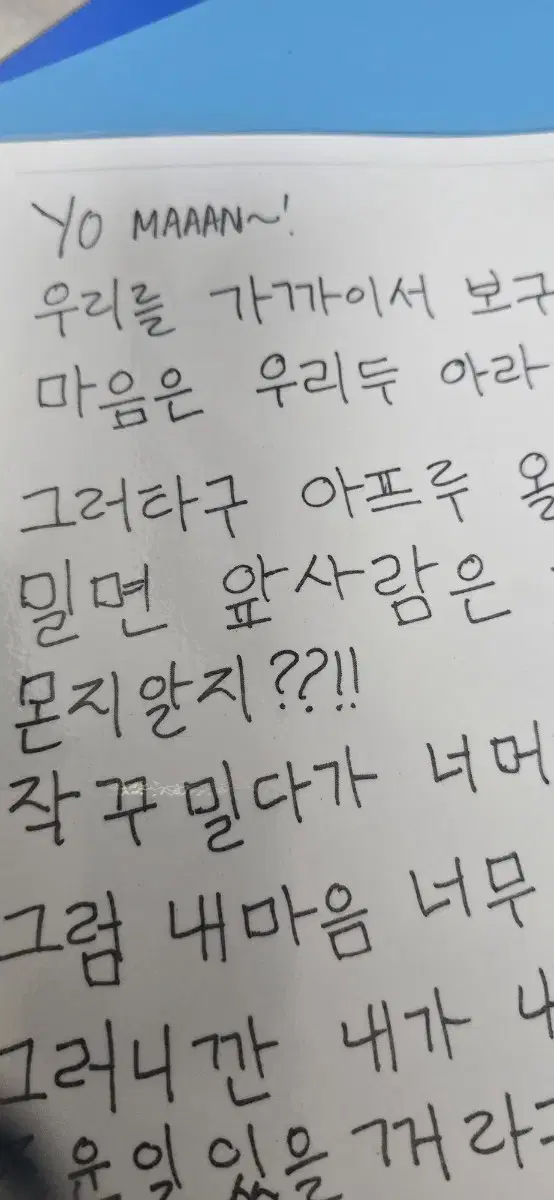 YO MAAAN~!
우리를 가까이서 보구
마음은 우리두 아라
그러타구 아프루
밀면 앞사람은
몬지알지??!!
작꾸밀다가 너머
그럼 내마음 너무
그러니깐 내가
운일있을꺼라